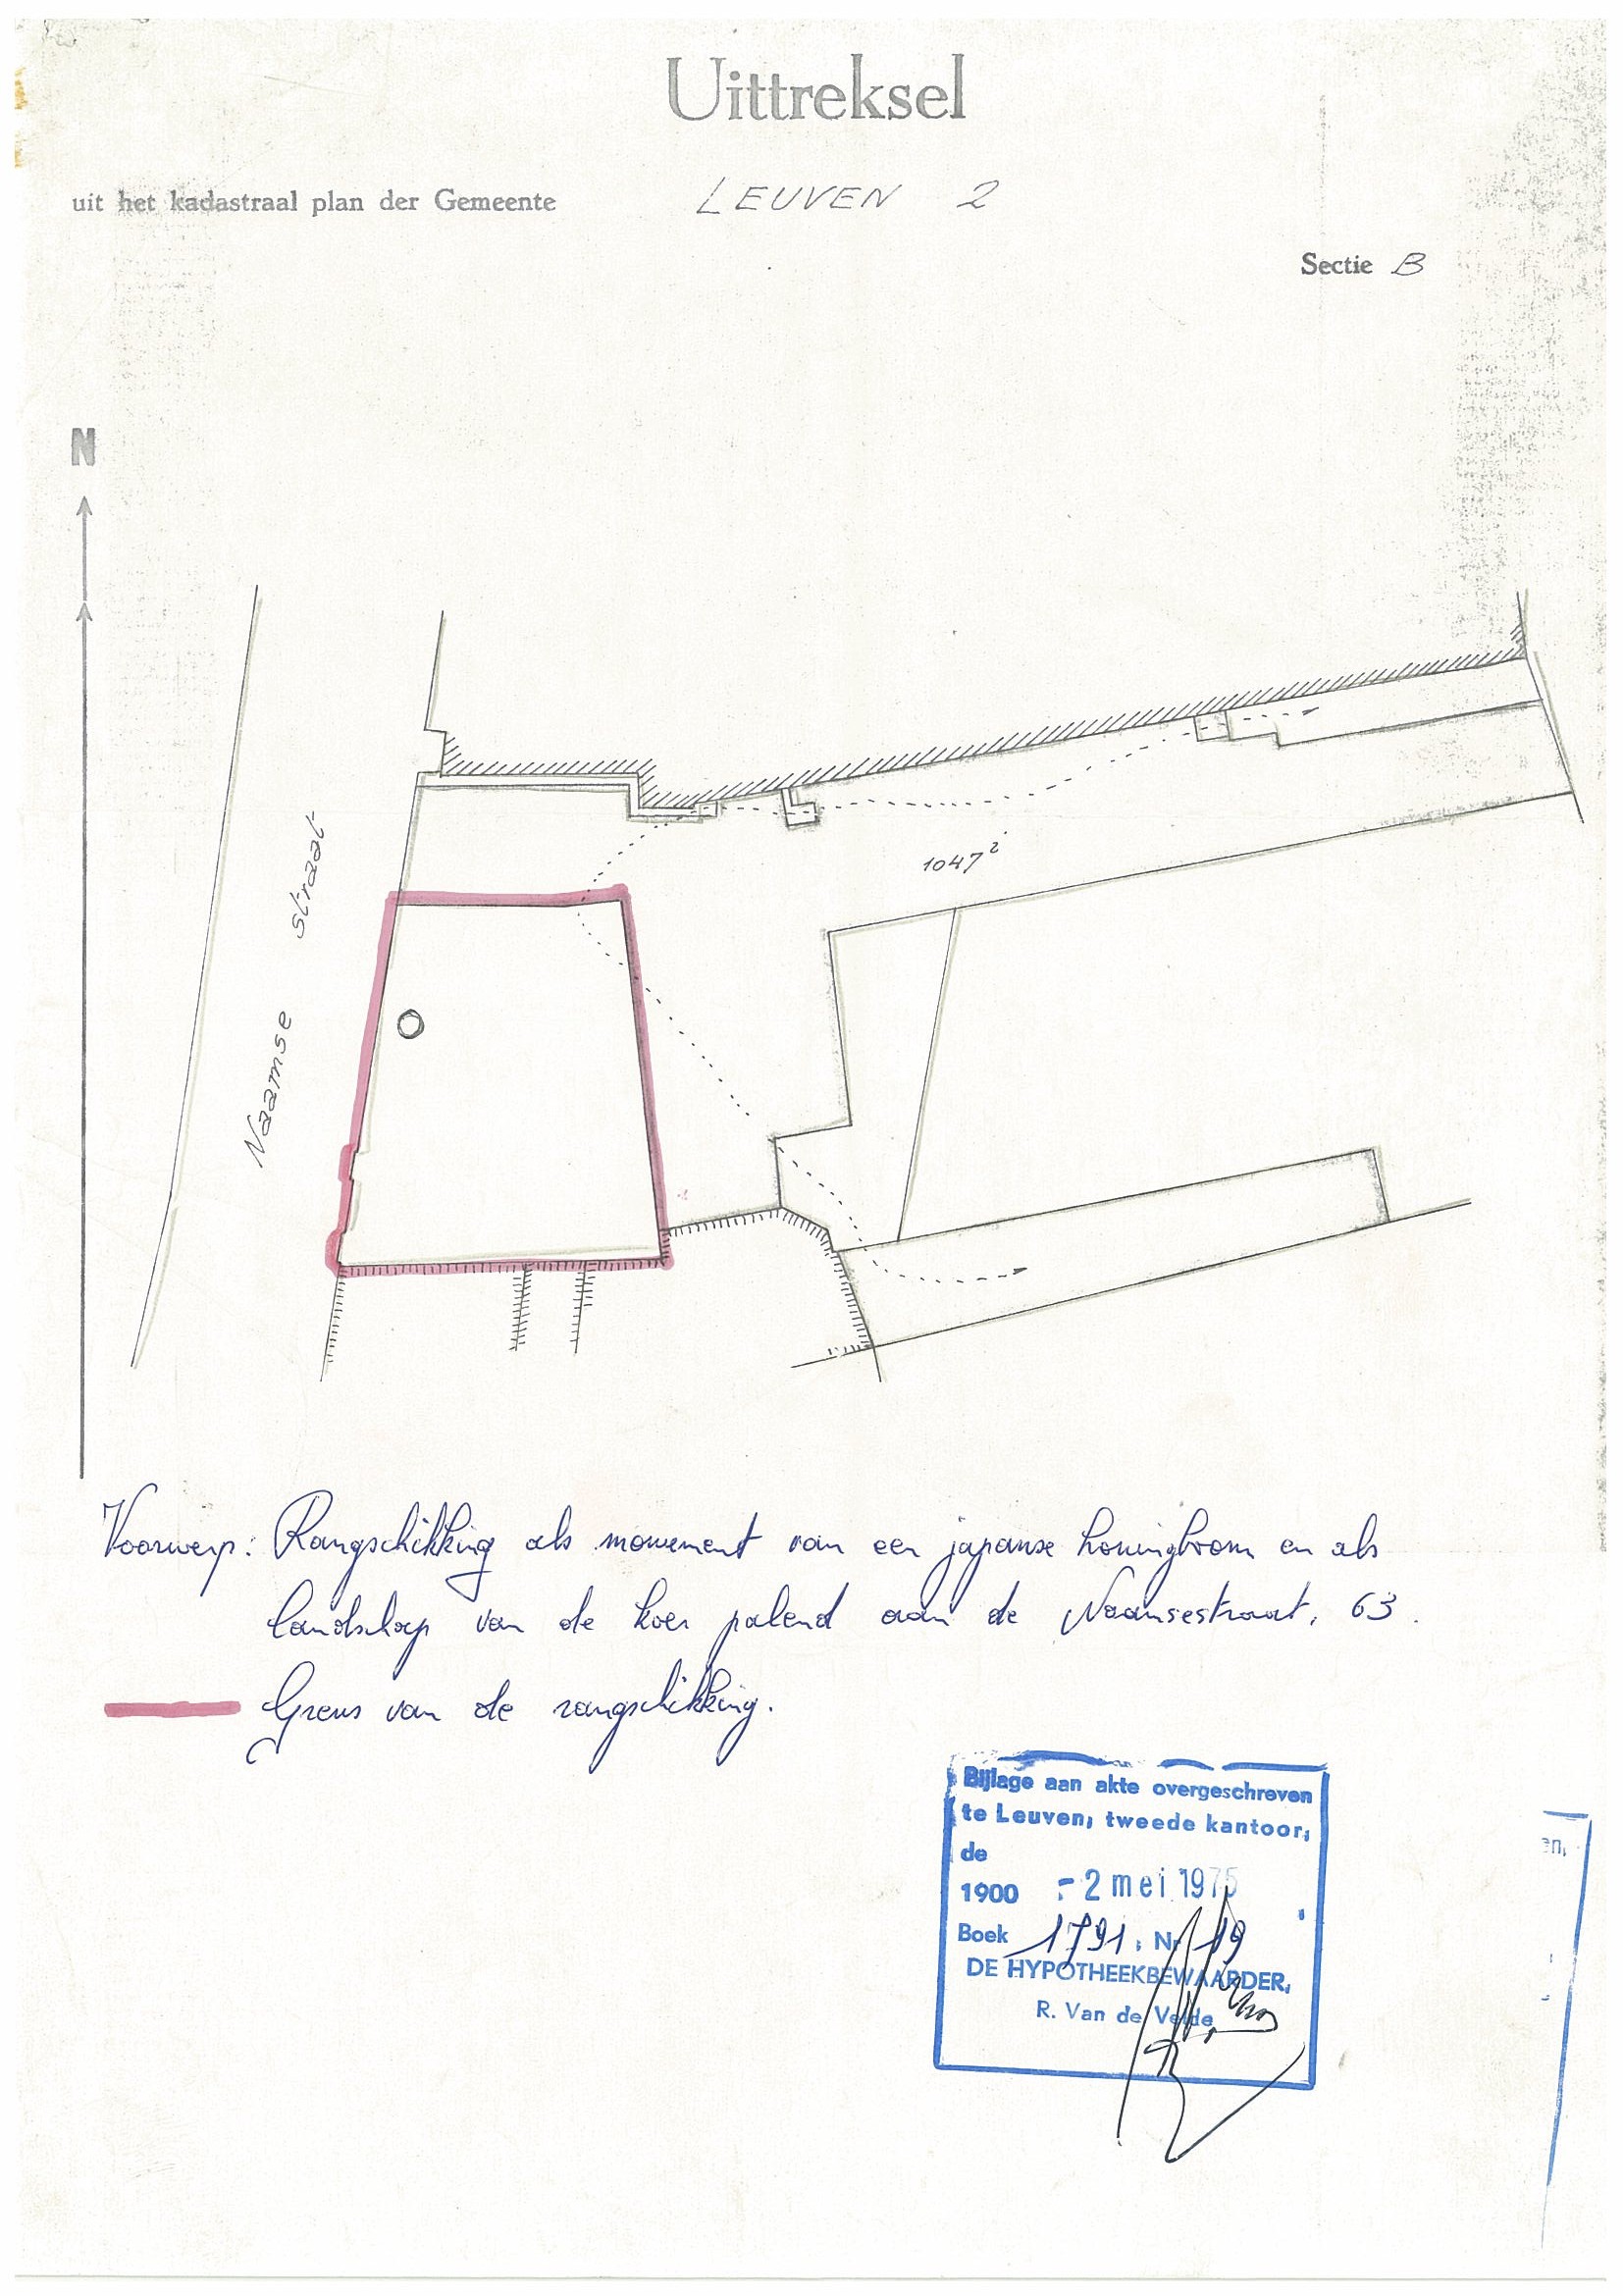 Uittreksel
uit het kadastraal plan der Gemeente LEUVEN 2
Sectie B
N
1047²
Naamse straat
Voorwerp: Rangschikking als monument van een japanse honingboom en als
landschap van de koer palend aan de Naamsestraat, 63.
Grens van de rangschikking.
Bijlage aan akte overgeschreven
te Leuven, tweede kantoor,
de
1900 - 2 mei 1975
Boek 1791, Nr 19
DE HYPOTHEEKBEWAARDER,
R. Van de Velde
en,